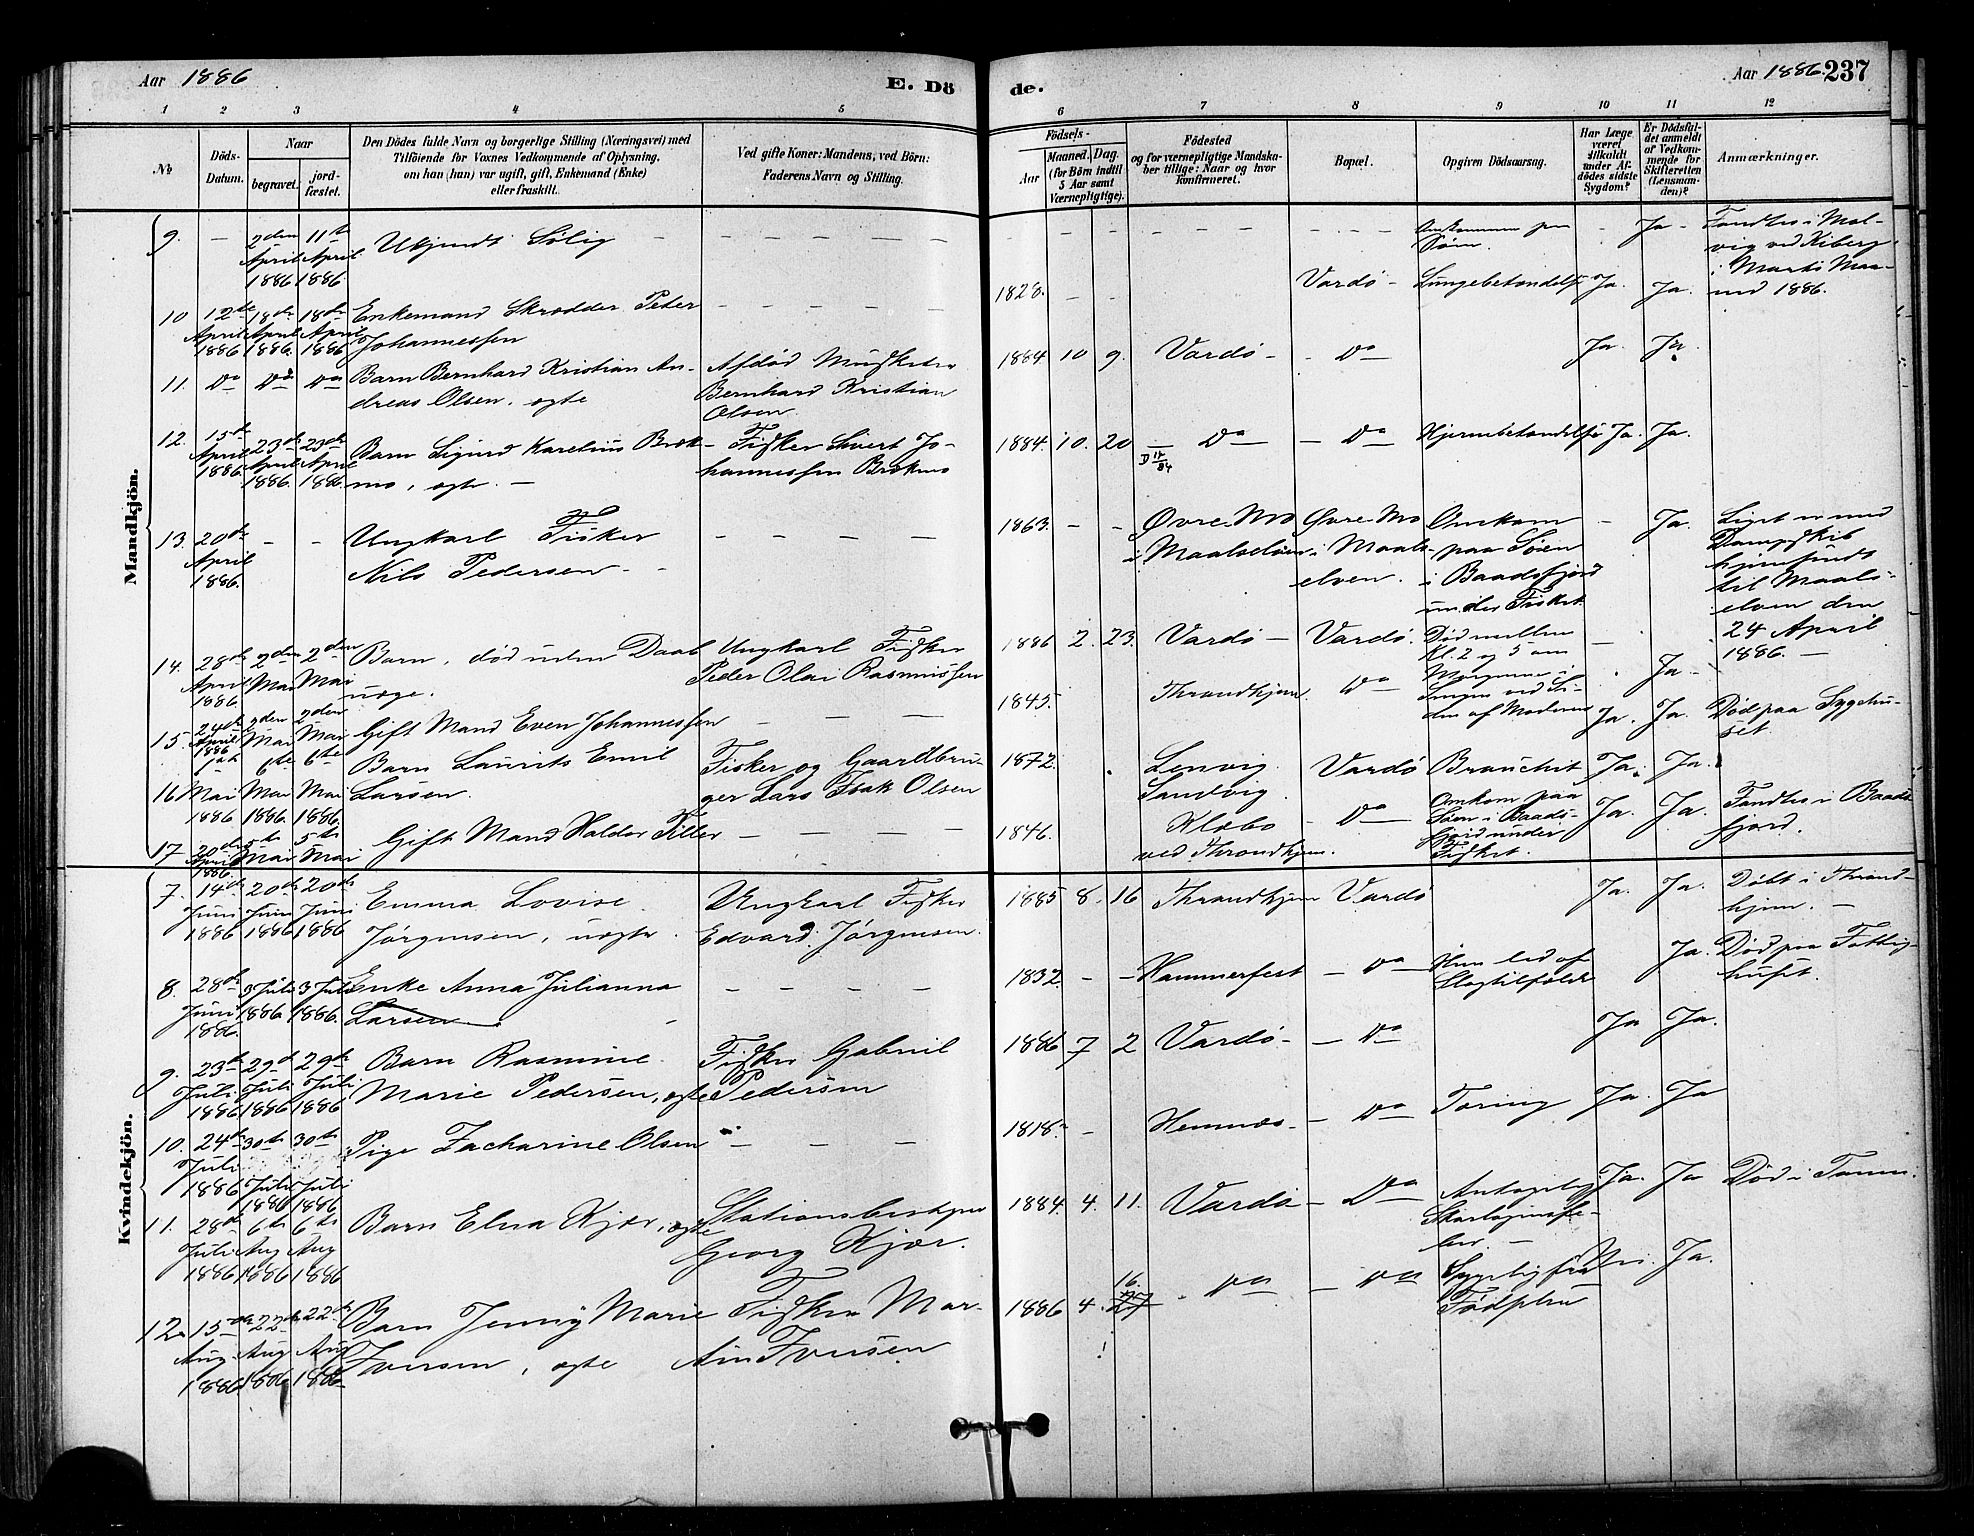 Aar 1886
E. Dö
de.
Aar 1886. 237
1 2 3 4 5 6 7 8 9 10 11 12
No
Döds-
Datum.
Naar
begravet.
jord-
fæstet.
Den Dödes fulde Navn og borgerlige Stilling (Næringsvei) med
Tilföiende for Voxnes Vedkommende af Oplysning,
om han (hun) var ugift, gift, Enkemand (Enke)
eller fraskilt.
Ved gifte Koner: Mandens, ved Börn:
Faderens Navn og Stilling.
Födsels-
Aar
Maaned.
Dag.
(for Börn indtil
5 Aar samt
Værnepligtige).
Födested
og for værnepligtige Mandska-
ber tillige: Naar og hvor
konfirmeret.
Bopæl.
Opgiven Dödsaarsag.
Har Læge
været
tilkaldt
under Af-
dödes sidste
Sygdom?
Er Dödsfal-
det anmeldt
af Vedkom-
mende for
Skifteretten
(Lensman-
den)?
Anmærkninger.
Mandkjön.
9. - 2den April 1886 11te April 1886 Ukjendt Sölig
Omkommen paa
Söen. - Ja - Fandtes i Mol-
vig ved Kiberg
i Marts Maa-
ned 1886.
10 12te April 1886 18de April 1886. 18de April 1886 Enkemand Skrædder Peter
Johannessen
1828. - - Vardö - Lungebetændelse Ja. Ja.
11. Do Do Do Barn Bernhard Kristian An-
dreas Olsen, ægte
Afdöd
Bernhard Kristian
Olsen
1884 10 9. Vardö - - Do Ja. Ja.
12. 15de April 1886. 23de April 1886. 23de April 1886. Barn Sigurd Karelius Brek-
mo, ægte. -
Fisker Sivert Jo-
hannessen Brekmo
1884. 10. 20 - Do - Do Hjernebetændelse Ja. Ja.
13. 20de April 1886. - - Ungkarl Fisker
Nils Pedersen -
1863. - - Øvre Mo
i Maalselven
Øvre Mo
i Maals-
elven.
Omkom
paa Söen
i Baadsfjord
under Fisket.
- Ja. Liget er med
Dampskib
hjemsendt
til Maals-
elven den
24 April
1886. -
14. 28de April 1886 2den Mai 2den Mai Barn, död uden Daab
uægte.
Ungkarl Fisker
Peder Olai Rasmussen
1886 2. 23. Vardö - Vardö. Död mellem
Kl. 2 og 5 om
Morgenen i
Sengen ved Si-
den af Moderen
- Ja. -
15. 24de April 1886 2den Mai 2den Mai Gift Mand Even Johannessen
1845. Throndhjem. Do Ja. Ja. Död paa Sygehu-
set.
16 1ste Mai 1886 6te Mai 1886. 6te Mai 1886. Barn Laurits Emil
Larsen.
Fisker og Gaardbru-
ger Lars Isak Olsen
1872. Lenvig.
Sandvig.
Vardö Ja. Ja.
17 20de April 1886. 5te Mai 5te Mai Gift Mand Haldor Tiller
1846. Klæbo
ved Throndhjem.
- Do - Omkom paa
Söen i Baads-
fjord under
Fisket.
Ja. Ja. Fandtes i Baads-
fjord.
Kvindekjön.
7. 14de Juni 1886 20de Juni 1886 20de Juni 1886 Emma Lovise
Jörgensen, uægte.
Ungkarl Fisker
Edvard Jörgensen.
1885 8. 16 Throndhjem Vardö Ja. Ja. Döbt i Thrond-
hjem. -
8. 28de Juni 1886. 3 Juli 1886 3 Juli 1886. Enke Anna Julianna
Larsen
1832. - - Hammerfest - Do - Hun led af
Slagtilfælde
Ja. Död paa Fattig-
huset.
9. 23de Juli 1886 29d Juli 1886 29de Juli 1886 Barn Rasmine
Marie Pedersen, ægte
Fisker Gabriel
Pedersen
1886 7 2 Vardö - - Do Ja Ja.
10. 24de Juli 1886 30te Juli 1886 30te Juli 1886 Pige Zacharine Olsen
1818. - Hemnæs - - Do Tæring Ja. Ja
11. 28de Juli 1886 6te Aug 1886 6te Aug 1886 Barn Elna Kjær, ægte
Stationsbestyrer
Georg Kjær.
1884. 4. 11. Vardö - Do Antagelig
Skarlaginsfe-
ber. -
Ja. Ja Död i
12. 15de Aug. 1886 22de Aug 1886 22de Aug 1886 Barn Jenny Marie
Iversen, ægte
Fisker Mar-
tin Iversen
1886 4. 16. - Do - Do Sygelig fra
Födselen
Nei. Ja.